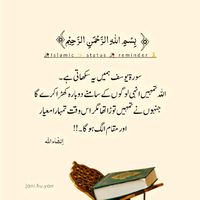 ﴿ بِسْمِ اللهِ الرَّحْمٰنِ الرَّحِيْمِ ﴾
Islamic status reminder
سورۃ یوسف ہمیں یہ سکھاتی ہے۔
اللہ تمہیں انہی لوگوں کے سامنے دوبارہ کھڑا کرے گا
جنہوں نے تمہیں توڑا تھا مگر اس وقت تمہارا معیار
اور مقام الگ ہو گا۔!!
إنشاءالله
jani.hu.yar